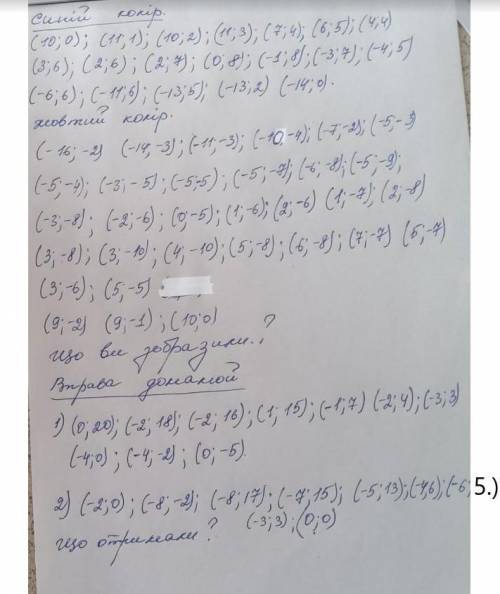 синій колір.
(10;0); (11,1); (10,2); (11,3); (7;4); (6;5); (4,4)
(3;6); (2;6); (2;7); (0;8); (-1;8); (-3;7); (-4;5)
(-6;6); (-11;6); (-13;5); (-13;2) (-14;0).
жовтий колір.
(-16;-2) (-14,-3); (-11;-3); (-10;-4); (-7;-2); (-5,-3)
(-5;-4); (-3;-5); (-5;-5); (-5;-7); (-6;-8); (-5;-9);
(-3;-8); (-2;-6); (0;-5); (1;-6); (2;-6) (1;-7); (2;-8)
(3;-8); (3;-10); (4;-10); (5;-8); (6;-8); (7;-7) (5;-7)
(3;-6); (5;-5)
(9;-2) (9;-1); (10;0)
Що ви зобразили..?
Вправа домашній
1) (0;20); (-2;18); (-2;16); (1;15); (-1;7) (-2;4); (-3;3)
(-4;0); (-4;-2); (0;-5).
2) (-2;0); (-8;-2); (-8;17); (-7;15); (-5;13); (-7;6); (-6;5.)
(-3;3); (0;0)
Що отримали?